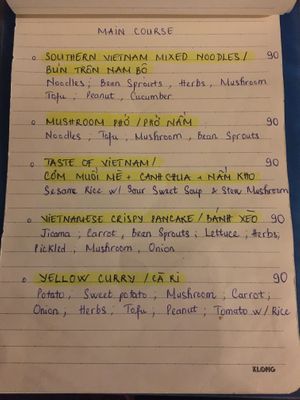 MAIN COURSE
○ SOUTHERN VIETNAM MIXED NOODLES / 90
BÚN TRỘN NAM BỘ
Noodles; Bean Sprouts, Herbs, Mushroom
Tofu; Peanut, Cucumber
○ MUSHROOM PHỞ / PHỞ NẤM 90
Noodles, Tofu, Mushroom, Bean Sprouts
○ TASTE OF VIETNAM / 90
CƠM MUỐI MÈ + CANH CHUA + NẤM KHO
Sesame Rice w/ Sour Sweet Soup & Stew Mushroom
○ VIETNAMESE CRISPY PANCAKE / BÁNH XÈO 90
Jicama; Carrot, Bean Sprouts; Lettuce; Herbs;
Pickled, Mushroom, Onion
○ YELLOW CURRY / CÀ RI 90
Potato, Sweet potato; Mushroom; Carrot;
Onion; Herbs; Tofu; Peanut; Tomato w/ Rice
KLONG